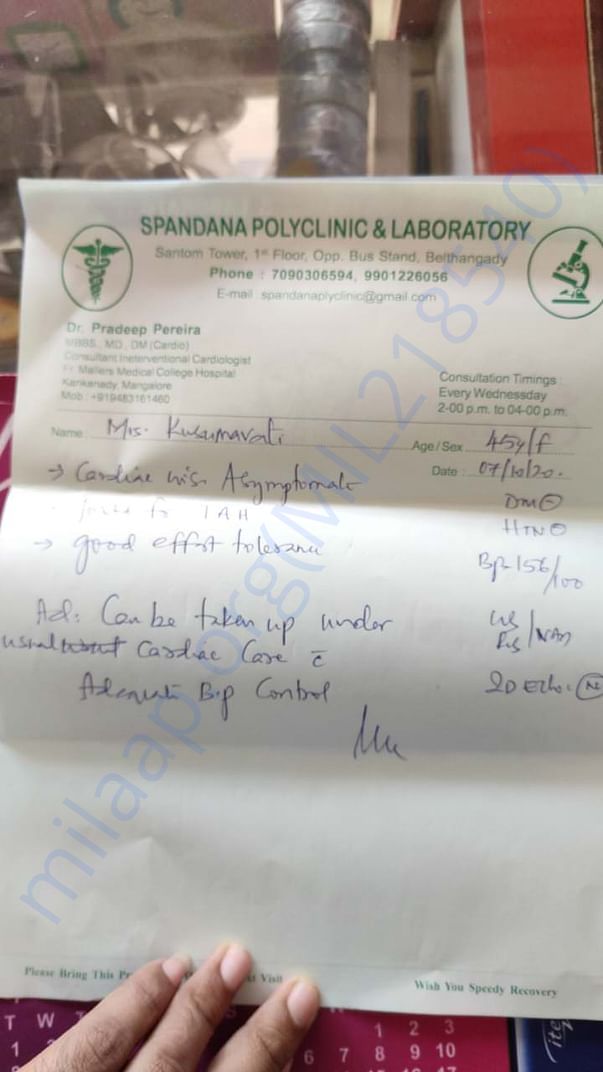 SPANDANA POLYCLINIC & LABORATORY
Santom Tower, 1st Floor, Opp. Bus Stand, Belthangady
Phone : 7090306594, 9901226056
E-mail : spandanaplyclinic@gmail.com
Dr. Pradeep Pereira
MBBS., MD., DM (Cardio)
Consultant Ineterventional Cardiologist
Fr. Mallers Medical College Hospital
Kankanady, Mangalore
Mob : +919483161460
Consultation Timings :
Every Wednesday
2-00 p.m. to 04-00 p.m.
Name : Mrs. Kusumavati
Age/Sex 45y/f
Date : 07/10/20.
→ Cardiac wise Asymptomatic
for TAH
→ good effort tolerance
DM ⊖
HTN ⊖
BP- 156/100
Ad: Can be taken up under
usual Cardiac Care c̄
Adequate B.p Control
NAD
2D Echo: N
Please Bring This Visit
Wish You Speedy Recovery
T W
1 2 3
6 7 8 9 10
milaap.org(MIL218540)